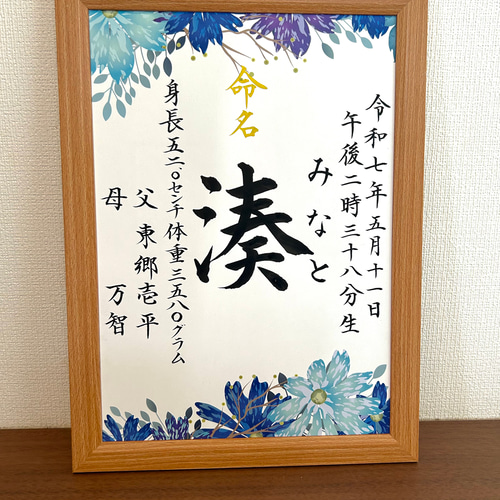 令和七年五月十一日
午後二時三十八分生
みなと
命名
湊
身長五二.〇センチ体重三五八〇グラム
父 東郷壱平
母 万智